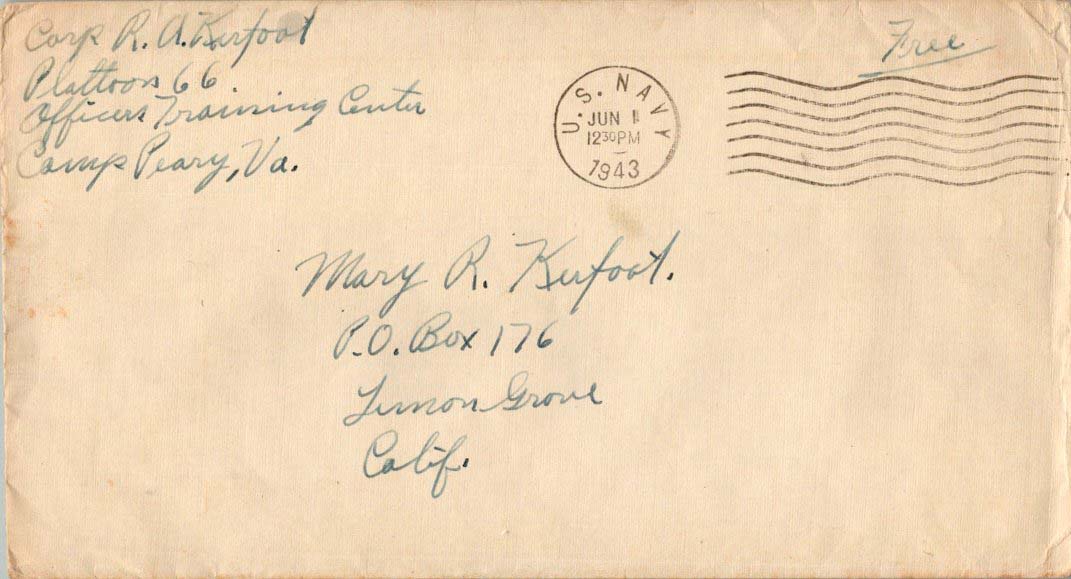 Corp R. A. Kerfoot
Plattoon 66
Officers Training Center
Camp Peary, Va.
Free
U. S. NAVY
JUN 1
12 30 PM
1943
Mary R. Kerfoot.
P.O. Box 176
Lemon Grove
Calif.